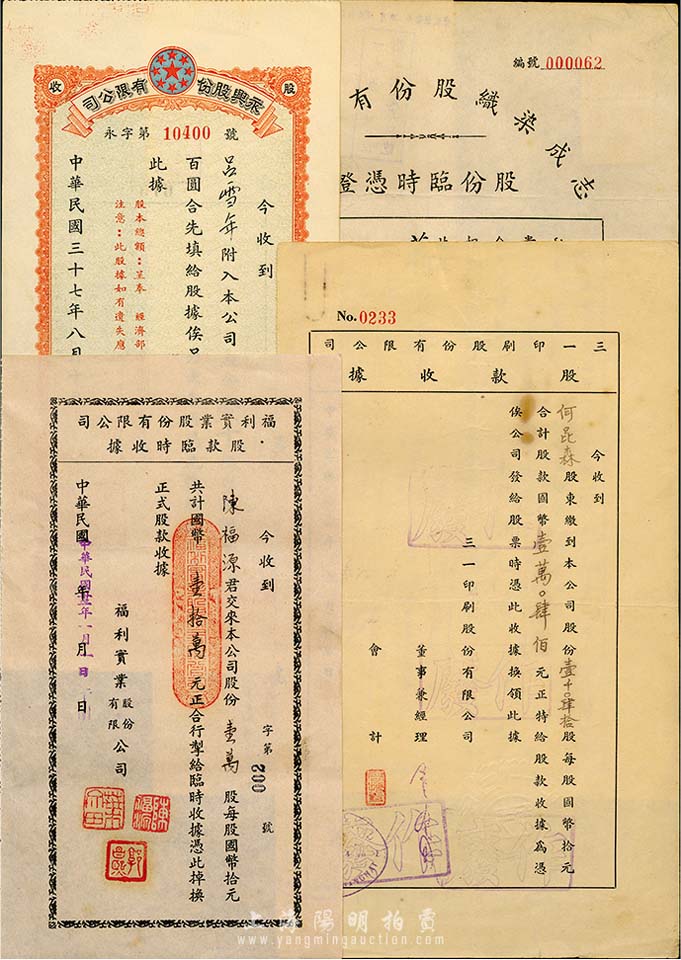 收
永興股份有限公司
股
永字第 10400 號
今收到
呂雪年附入本公司
百圓合先填給股據俟
此據
股本總額：呈奉 經濟部
注意：此股據如有遺失應
中華民國三十七年八月
編號 000062
志成染織股份有
股份臨時憑證
No. 0233
三一印刷股份有限公司
股款收據
今收到
何昆森股東繳到本公司股份壹千〇肆拾股每股國幣拾元
合計股款國幣壹萬〇肆佰元正特給股款收據為憑
俟公司發給股票時憑此收據換領此據
三一印刷股份有限公司
董事兼經理
會計
福利實業股份有限公司
股款臨時收據
字第 002 號
今收到
陳福源君交來本公司股份壹萬股每股國幣拾元
共計國幣壹拾萬元正合行掣給臨時收據憑此掉換
正式股款收據
福利實業股份有限公司
中華民國 年 月 日
上海陽明拍賣
www.yangmingauction.com